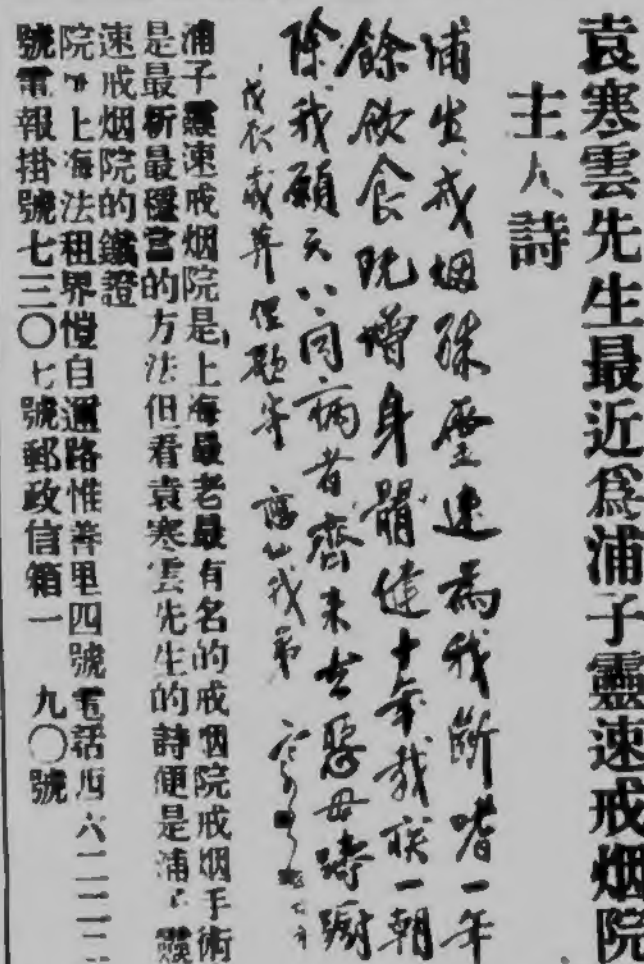 袁寒雲先生最近爲浦子靈速戒烟院
主人詩
浦生戒烟殊靈速爲我斷嗜一年
餘飲食既增身體健十年我疾一朝
除我願天下同病者齊來去惡毋踌躇
浦子靈速戒烟院是上海最老最有名的戒烟院戒烟手術
是最新最穩當的方法但看袁寒雲先生的詩便是浦子靈
速戒烟院的鐵證
院在上海法租界愷自邇路惟善里四號電話四六二二二
號電報掛號七三〇七號郵政信箱一九〇號